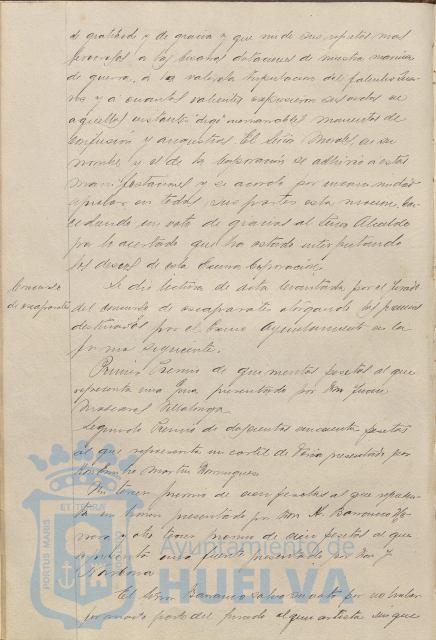 de gratitud y de gracia y que rinde sus respetos mas
fervorosos a las bravas dotaciones de nuestra marina
de guerra, á la valerosa tripulacion del
y a cuantos valientes expusieron sus vidas en
aquellos instantes momentos de
confusión y angustias. El Señor Morales en su
nombre y el de la Corporación se adhirió á estas
manifestaciones y se acordo por unanimidad
aprobar en todas sus partes esta mocion, con-
cediendo un voto de gracias al Señor Alcalde
por lo acertado que ha estado interpretando
los deseos de esta Excma Corporación.
Concurso
de escaparates
Se dio lectura de acta levantada por el Jurado
del concurso de escaparates otorgando los premios
destinados por el Excmo Ayuntamiento en la
forma siguiente.
Primer Premio de quinientas pesetas al que
representa una presentado por Don Juan
Mascarel Villalonga
Segundo Premio de doscientas cincuenta pesetas
al que representa un cartel de presentado por
Martin Dominguez
Un tercer premio de cien pesetas al que represen-
ta un presentado por Don A. Barranco
y otro tercer premio de cien pesetas al que
representa una fuente presentado por Don J.
El Señor Barranco salvo su voto por no haber
formado parte del jurado algun artista
ET TERRÆ
PORTUS MARIS
CUSTODIA
Ayuntamiento de
HUELVA